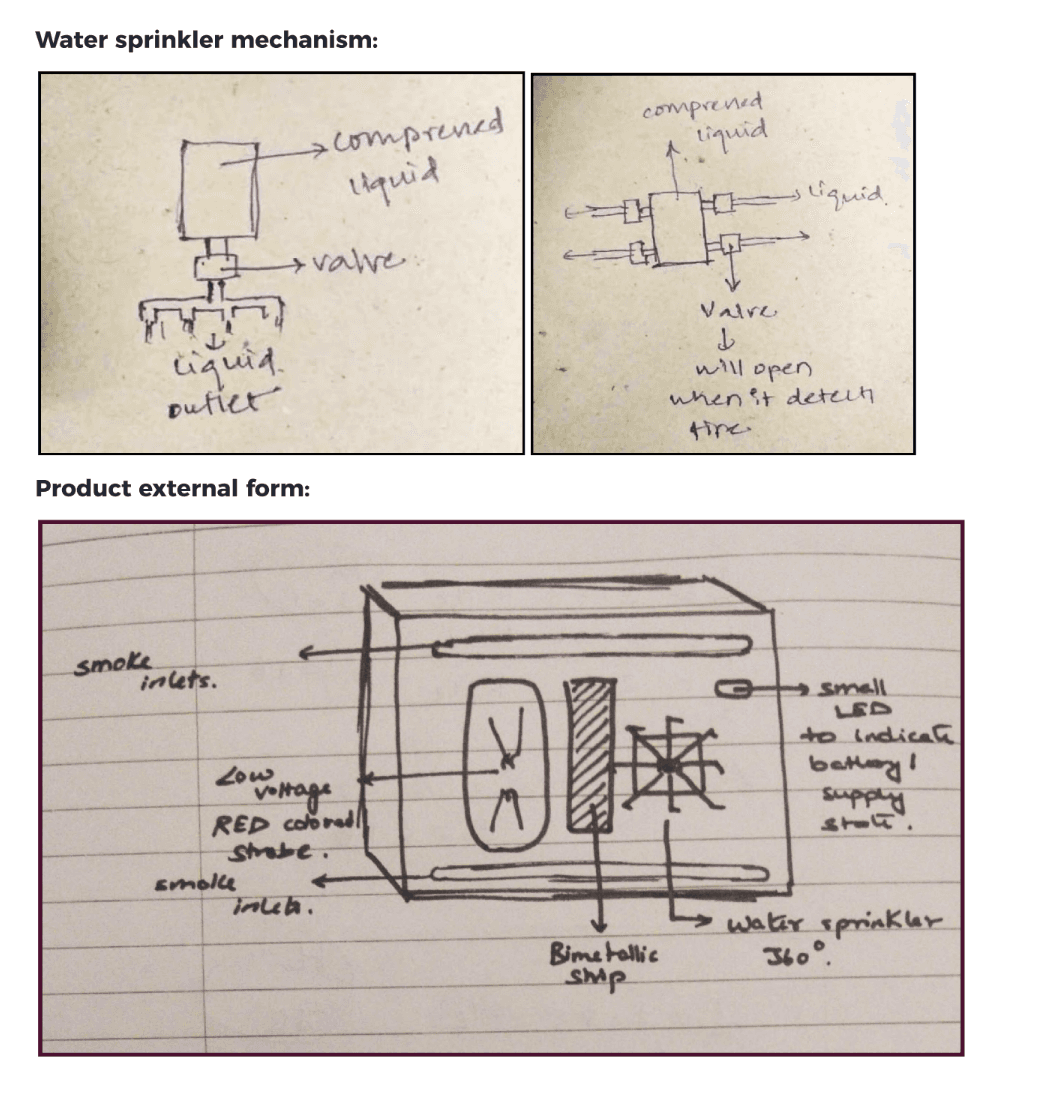 Water sprinkler mechanism:
comprened
liquid
valve
liquid
outlet
comprened
liquid
liquid
Valve
will open
when it detects
fire
Product external form:
smoke
inlets.
small
LED
to indicate
battery /
supply
state.
Low
voltage
RED colored
strobe.
smoke
inlets.
water sprinkler
360°.
Bimetallic
strip